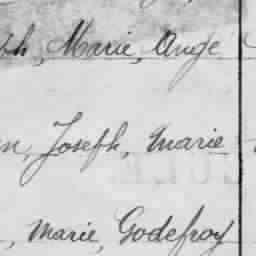 ph, Marie, Ange
n, Joseph, Marie
, Marie, Godefroy